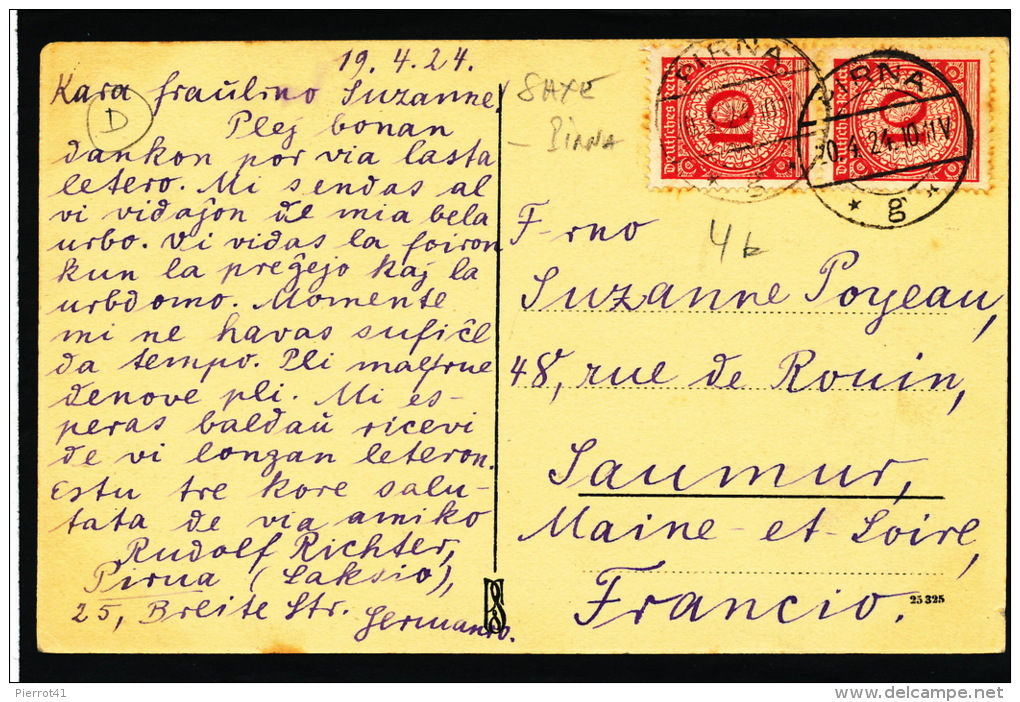 19. 4. 24.
Kara fraŭlino Suzanne!
Plej bonan
dankon por via lasta
letero. Mi sendas al
vi vidaĵon de mia bela
urbo. Vi vidas la foiron
kun la preĝejo kaj la
urbdomo. Momente
mi ne havas sufiĉe
da tempo. Pli malfrue
denove pli. Mi es-
peras baldaŭ ricevi
de vi longan leteron.
Estu tre kore salu-
tata de via amiko
Rudolf Richter,
Pirna (Saksio),
25, Breite Str. Germanio.
D
SAXE
- Pirna
PIRNA
Deutsches Reich
10
g
PIRNA
20.4.24.10-11V
g
4 b
F-rno
Suzanne Poyeau,
48, rue de Rouin,
Saumur,
Maine-et-Loire,
Francio.
25325
Pierrot41
http://www.delcampe.net